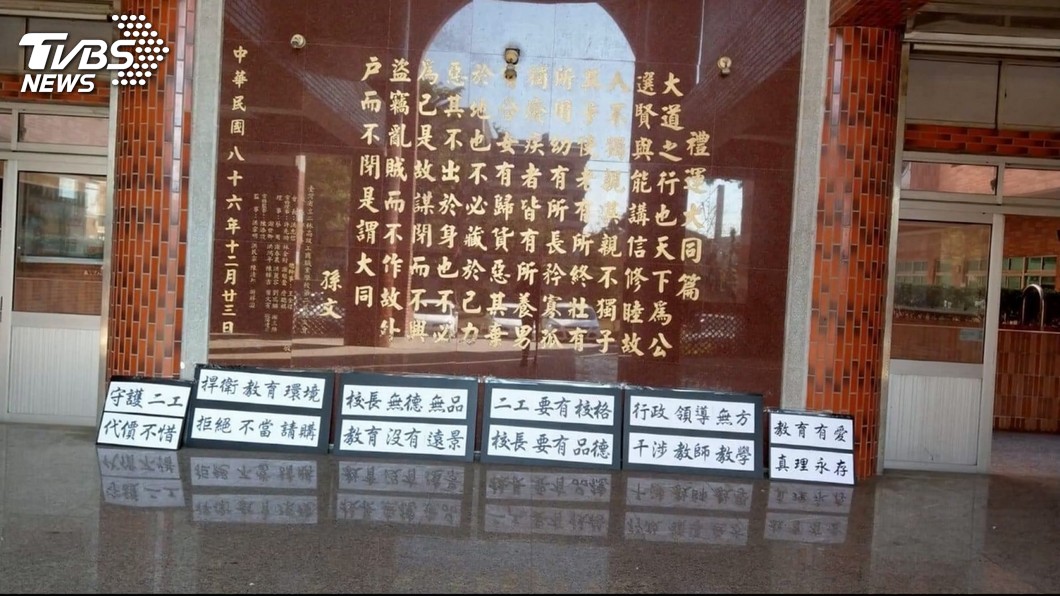 TVBS
NEWS
禮運大同篇
大道之行也天下為公
選賢與能講信修睦故
人不獨親其親不獨子
其子使老有所終壯有
所用幼有所長矜寡孤
獨廢疾者皆有所養男
有份女有歸貨惡其棄
於地也不必藏於己力
惡其不出於身也不必
為己是故謀閉而不興
盜竊亂賊而不作故外
戶而不閉是謂大同
孫文
中華民國八十六年十二月廿三日
守護二工
代價不惜
捍衛教育環境
拒絕不當請購
校長無德無品
教育沒有遠景
二工要有核格
校長要有品德
行政領導無方
干涉教師教學
教育有愛
真理永存